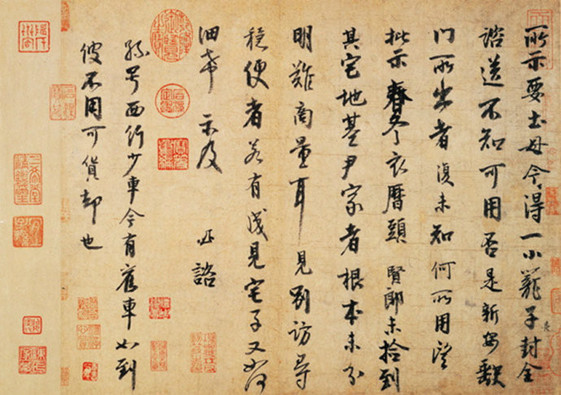 所示要土母今得一小籠子封全
諮送不知可用否是新安缺
門所出者復未知何所用望
批示春冬衣曆頭賢郎未檢到
其宅地基尹家者根本未分
明難商量耳見別訪尋
穩便者若有成見宅子又如何
細希示及 諮
孫號西行少車今有舊車如到
彼不用可貨却也